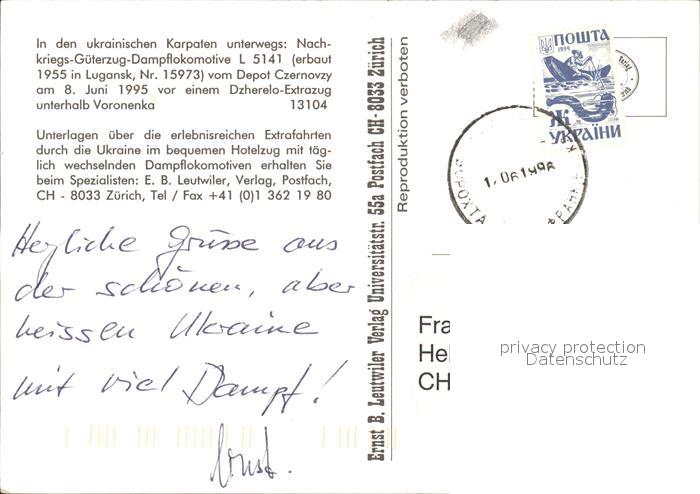 In den ukrainischen Karpaten unterwegs: Nach-
kriegs-Güterzug-Dampflokomotive L 5141 (erbaut
1955 in Lugansk, Nr. 15973) vom Depot Czernovzy
am 8. Juni 1995 vor einem Dzherelo-Extrazug
unterhalb Voronenka 13104
Unterlagen über die erlebnisreichen Extrafahrten
durch die Ukraine im bequemen Hotelzug mit täg-
lich wechselnden Dampflokomotiven erhalten Sie
beim Spezialisten: E. B. Leutwiler, Verlag, Postfach,
CH - 8033 Zürich, Tel / Fax +41 (0)1 362 19 80
Herzliche Grüsse aus
der schönen, aber
heissen Ukraine
mit viel Dampf!
Ernst.
Ernst B. Leutwiler Verlag Universitätstr. 55a Postfach CH - 8033 Zürich
Reproduktion verboten
ПОШТА
1994
Ж
УКРАЇНИ
ВОРОХТА
Fra
Hel
CH
privacy protection
Datenschutz